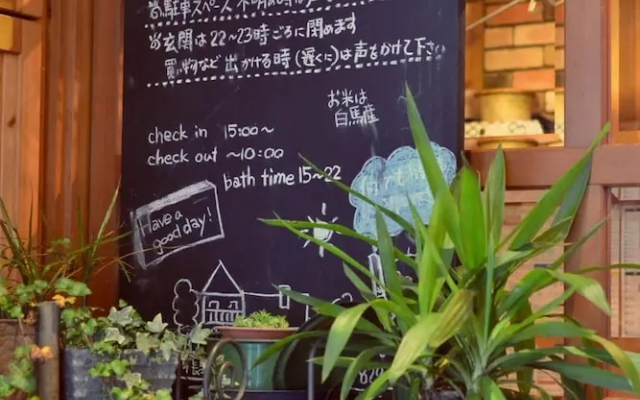 駐車スペース不明の時は声
※玄関は22~23時ごろに閉めます
買い物など出かける時(遅くに)は声をかけて下さい
お米は
白馬産
check in 15:00~
check out ~10:00
bath time 15~22
Have a
good day!